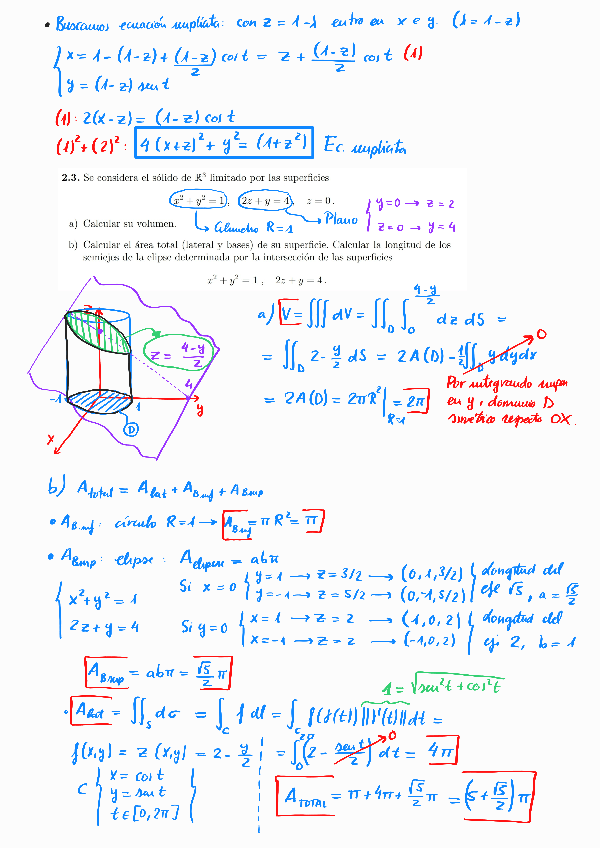 • Buscamos ecuación implícita: con z = 1-λ entro en x e y. (λ = 1-z)
x = 1-(1-z) + (1-z)/2 cos t = z + (1-z)/2 cos t (1)
y = (1-z) sen t
(1): 2(x-z) = (1-z) cos t
(1)²+(2)²: 4(x+z)² + y² = (1+z²) Ec. implícita
2.3. Se considera el sólido de ℝ³ limitado por las superficies
x² + y² = 1, 2z + y = 4, z = 0.
y=0 → z=2
z=0 → y=4
Cilindro R=1
Plano
a) Calcular su volumen.
b) Calcular el área total (lateral y bases) de su superficie. Calcular la longitud de los
semiejes de la elipse determinada por la intersección de las superficies
x² + y² = 1, 2z + y = 4.
z
z = (4-y)/2
4
-1
1
y
x
D
a) V = ∭ dV = ∬_D ∫_0^{(4-y)/2} dz dS =
= ∬_D 2 - y/2 dS = 2A(D) - 1/2 ∬_D y dy dx 0
= 2A(D) = 2πR²|_{R=1} = 2π
Por integrando impar
en y, dominio D
simétrico respecto OX.
b) A_total = A_lat + A_B.inf + A_Bsup
• A_B.inf: círculo R=1 → A_B.inf = πR² = π
• A_Bsup: elipse: A_elipse = abπ
x²+y² = 1
2z+y = 4
Si x = 0 y=1 → z = 3/2 → (0,1,3/2)
y=-1 → z = 5/2 → (0,-1,5/2)
longitud del
eje √5, a = √5/2
Si y=0 x=1 → z = 2 → (1,0,2)
x=-1 → z = 2 → (-1,0,2)
longitud del
eje 2, b = 1
A_Bsup = abπ = √5/2 π
1 = √(sen²t + cos²t)
• A_lat = ∬_S dσ = ∫_C f dl = ∫_C f(γ(t)) ||γ'(t)|| dt =
f(x,y) = z(x,y) = 2 - y/2
= ∫_0^{2π} (2 - sen t/2) dt = 4π
0
C x = cos t
y = sen t
t ∈ [0,2π]
A_TOTAL = π + 4π + √5/2 π = (5 + √5/2) π